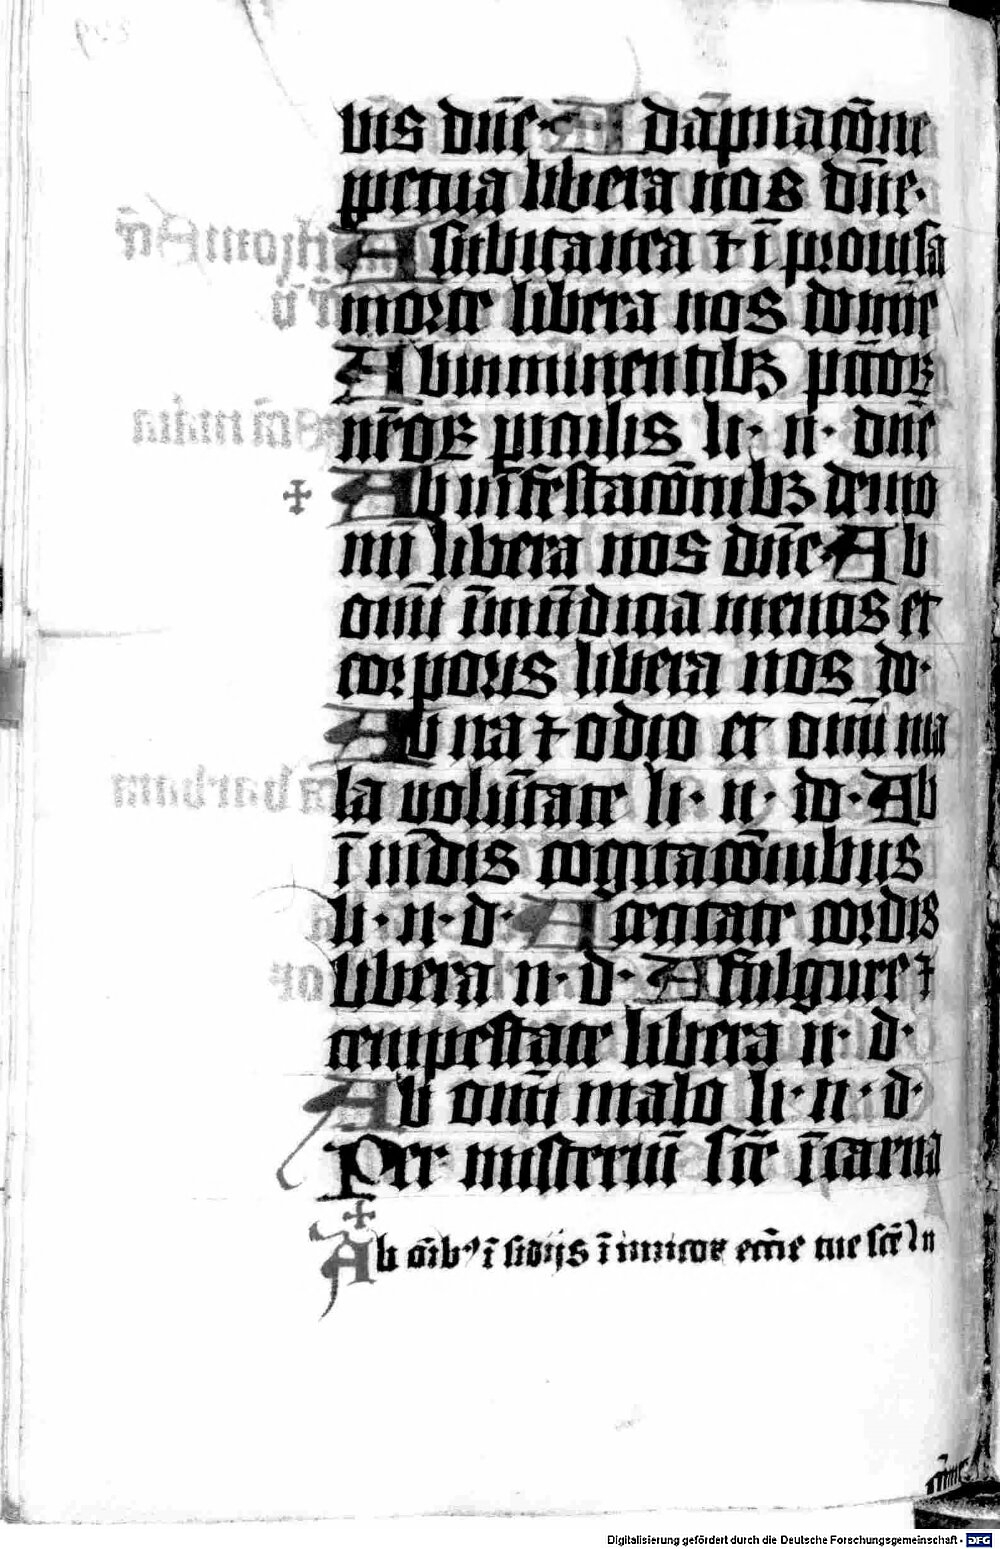 bis dn̄e· A dāpnacōne
ꝑpetua libera nos dn̄e·
A subitanea ⁊ ī prouisa
morte libera nos domīe
Ab inminentibꝫ pc̄coꝝ
nr̄oꝝ ꝑiculis li· n· dn̄e
✠ Ab infestacōnibꝫ demo
nū libera nos dn̄e Ab
omī īmūdicia mentis et
corporis libera nos do·
Ab ira ⁊ odio et omī ma
la volūtate li· n· do· Ab
ī mūdis cogitacōnibus
li· n· d· A cecitate cordis
libera n· d· A fulgure ⁊
tempestate libera n· d·
Ab omī malo li· n· d·
Per misteriū sc̄e īcarna
✠
Ab oībꝰ ī sidijs īimicoꝝ ecc̄ie tue sc̄e l n
Digitalisierung gefördert durch die Deutsche Forschungsgemeinschaft - DFG